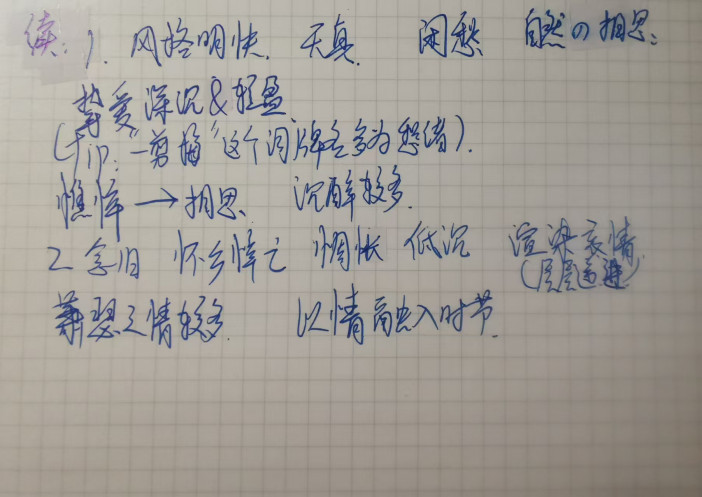 续: 1. 风格明快. 天真. 闲愁 自然の相思.
挚爱深沉&轻盈
(tip: "一剪梅"这个词牌名多为愁绪).
憔悴→相思. 沉醉较多.
2 念旧 怀乡悼亡 惆怅 低沉 渲染哀情
(层层递进)
萧瑟之情较多. 以情融入时节.